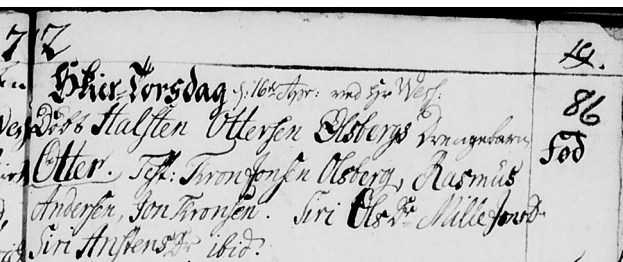 7 12 19.
Skier-Torsdag s: 16de Apr: ved Hr Wess. 86
Døbt Halsten Ottersen Olsbergs Drengebarn Fød
Otter. Test: Tron Jonsen Olsberg, Rasmus
Andersen, Jon Tronsen. Siri Ols Dr Mille
Siri Arstens Dr ibid: